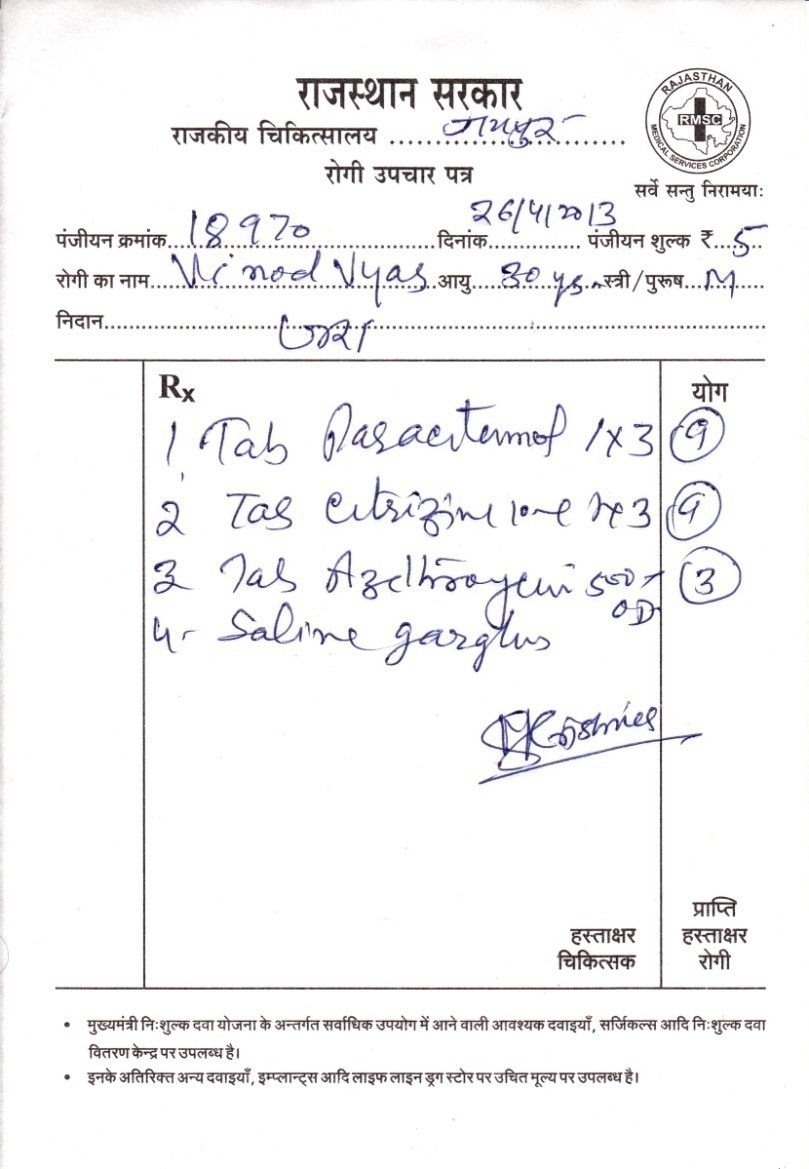 राजस्थान सरकार
राजकीय चिकित्सालय .... जयपुर ....
रोगी उपचार पत्र
RAJASTHAN
RMSC
MEDICAL SERVICES CORPORATION
सर्वे सन्तु निरामयाः
पंजीयन क्रमांक...18970...दिनांक...26/4/2013...पंजीयन शुल्क ₹...5
रोगी का नाम...Vinod Vyas...आयु...30 yrs...स्त्री/पुरूष...M
निदान...
Rx योग
1, Tab Paracitemol 1x3 9
2 Tab Citrizine 1x3 9
3 Tab Azithromycin 500 OD 3
4- Saline gargles
हस्ताक्षर चिकित्सक
प्राप्ति हस्ताक्षर रोगी
• मुख्यमंत्री निःशुल्क दवा योजना के अन्तर्गत सर्वाधिक उपयोग में आने वाली आवश्यक दवाइयाँ, सर्जिकल्स आदि निःशुल्क दवा
वितरण केन्द्र पर उपलब्ध है।
• इनके अतिरिक्त अन्य दवाइयाँ, इम्प्लान्ट्स आदि लाइफ लाइन ड्रग स्टोर पर उचित मूल्य पर उपलब्ध है।